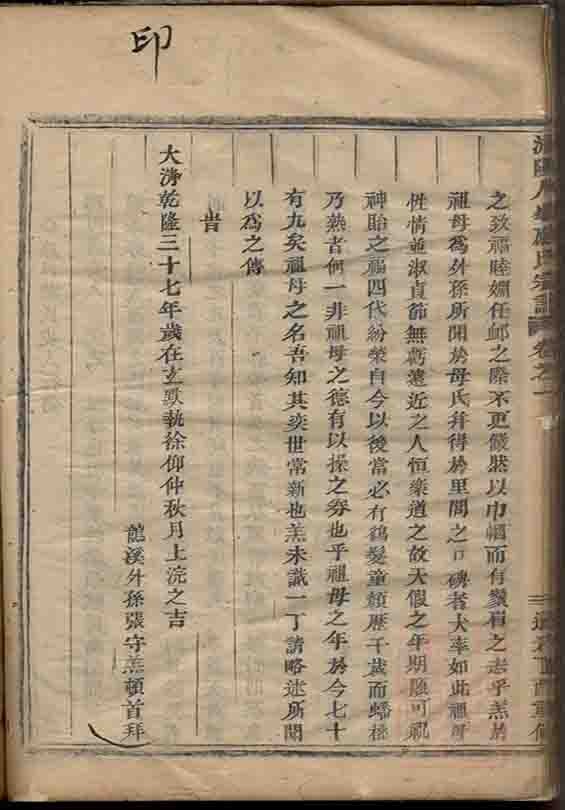 印
之致福睦婣任卹之際不更儼然以巾幗而有鬚眉之志乎羔於
祖母為外孫所聞於母氏并得於里閭之口碑者大率如此祖母
性情並淑貞節無虧遠近之人恒樂道之故天假之年期頤可祝
神貽之福四代紛榮自今以後當必有鶴髮童顏歷千歲而蟠桃
乃熟者何一非祖母之德有以操之劵也乎祖母之年於今七十
有九矣祖母之名吾知其奕世常新也羔未識一丁請略述所聞
以為之傳
旹
大淸乾隆三十七年歲在玄黓執徐仰仲秋月上浣之吉
龍溪外孫張守羔頓首拜
氏宗譜 卷之一